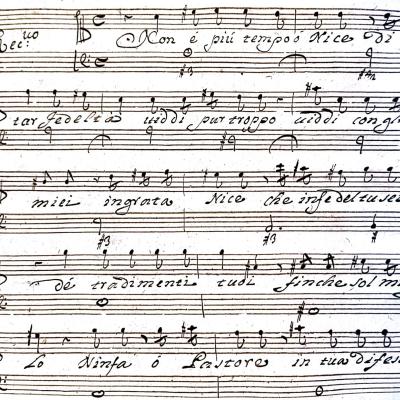 Rec:vo Non è più tempo ò Nice di
tar fedeltà uiddi pur troppo uiddi con gl
miei ingrata Nice che infedel tu sei
dè tradimenti tuoi finche sol mi
Lo Ninfa ò Pastore in tua difes